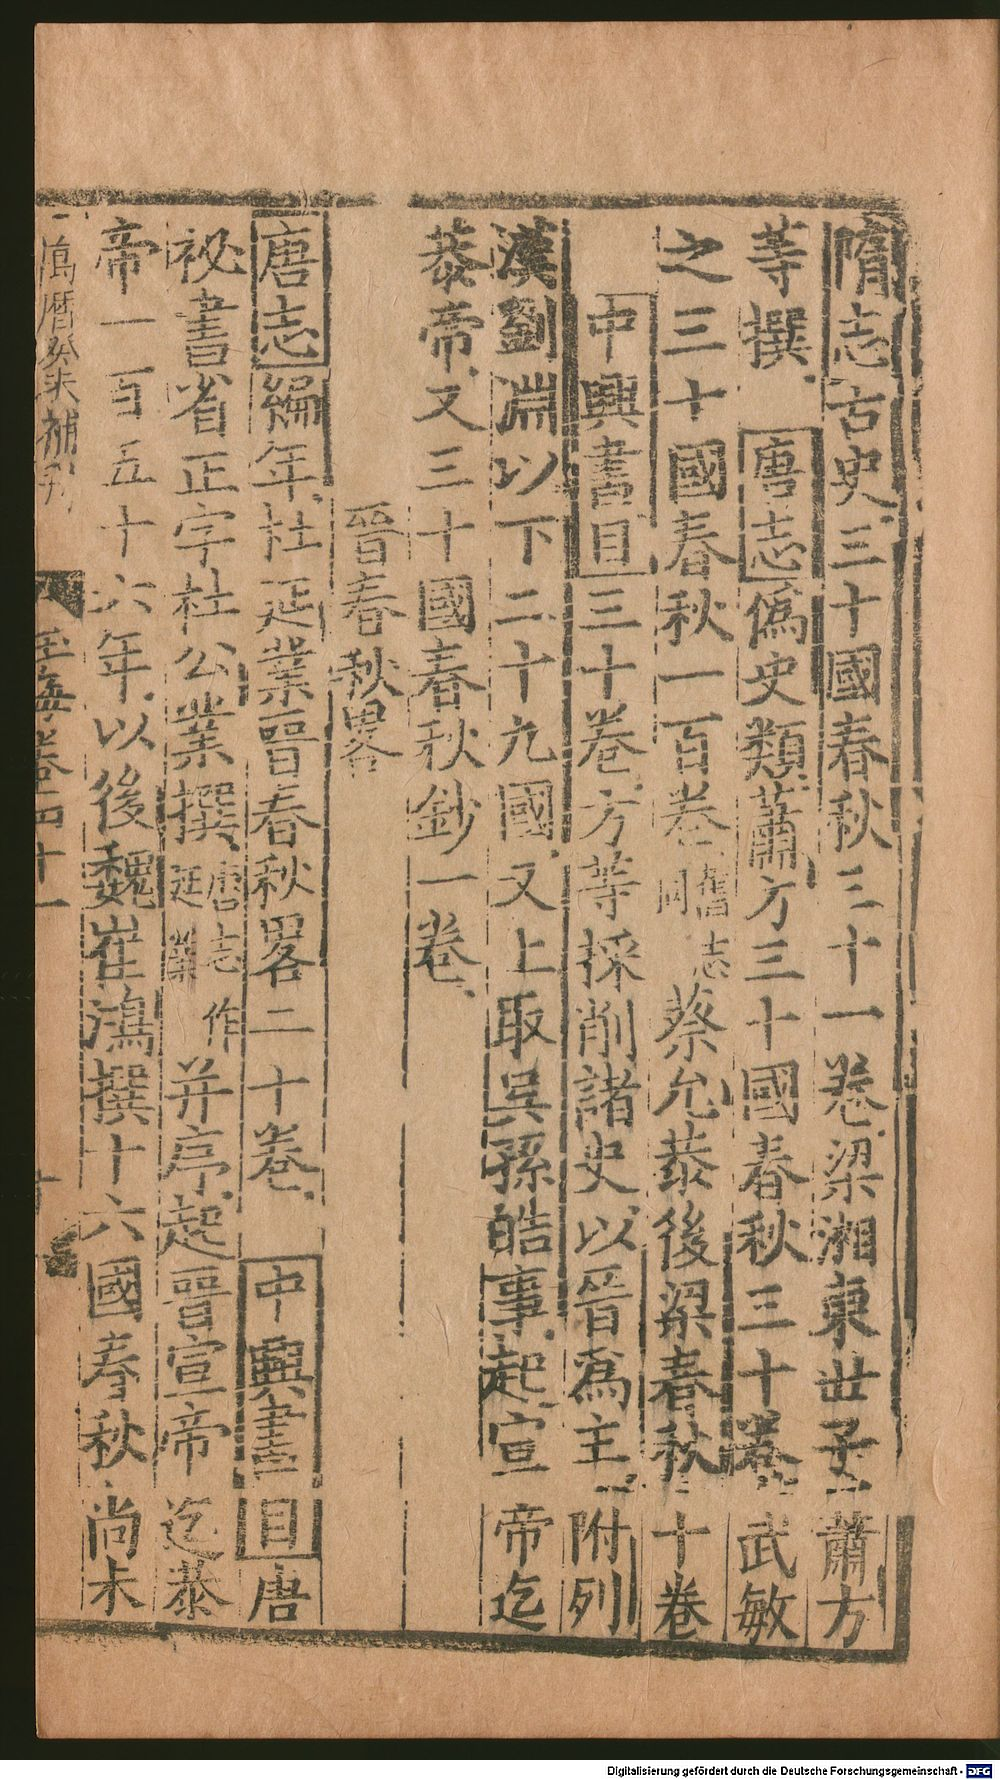 隋志古史三十國春秋三十一卷梁湘東世子蕭方
等撰 唐志偽史類蕭方三十國春秋三十卷武敏
之三十國春秋一百卷舊志同蔡允恭後梁春秋十卷
中興書目三十卷方等採削諸史以晉爲主附列
漢劉淵以下二十九國又上取吳孫皓事起宣帝迄
恭帝又三十國春秋鈔一卷
晉春秋畧
唐志編年杜延業晉春秋畧二十卷 中興書目唐
祕書省正字杜公業撰唐志作延業并序起晉宣帝迄恭
帝一百五十六年以後魏崔鴻撰十六國春秋尚未
萬曆癸未補刊 玉海卷四十一
Digitalisierung gefördert durch die Deutsche Forschungsgemeinschaft - DFG